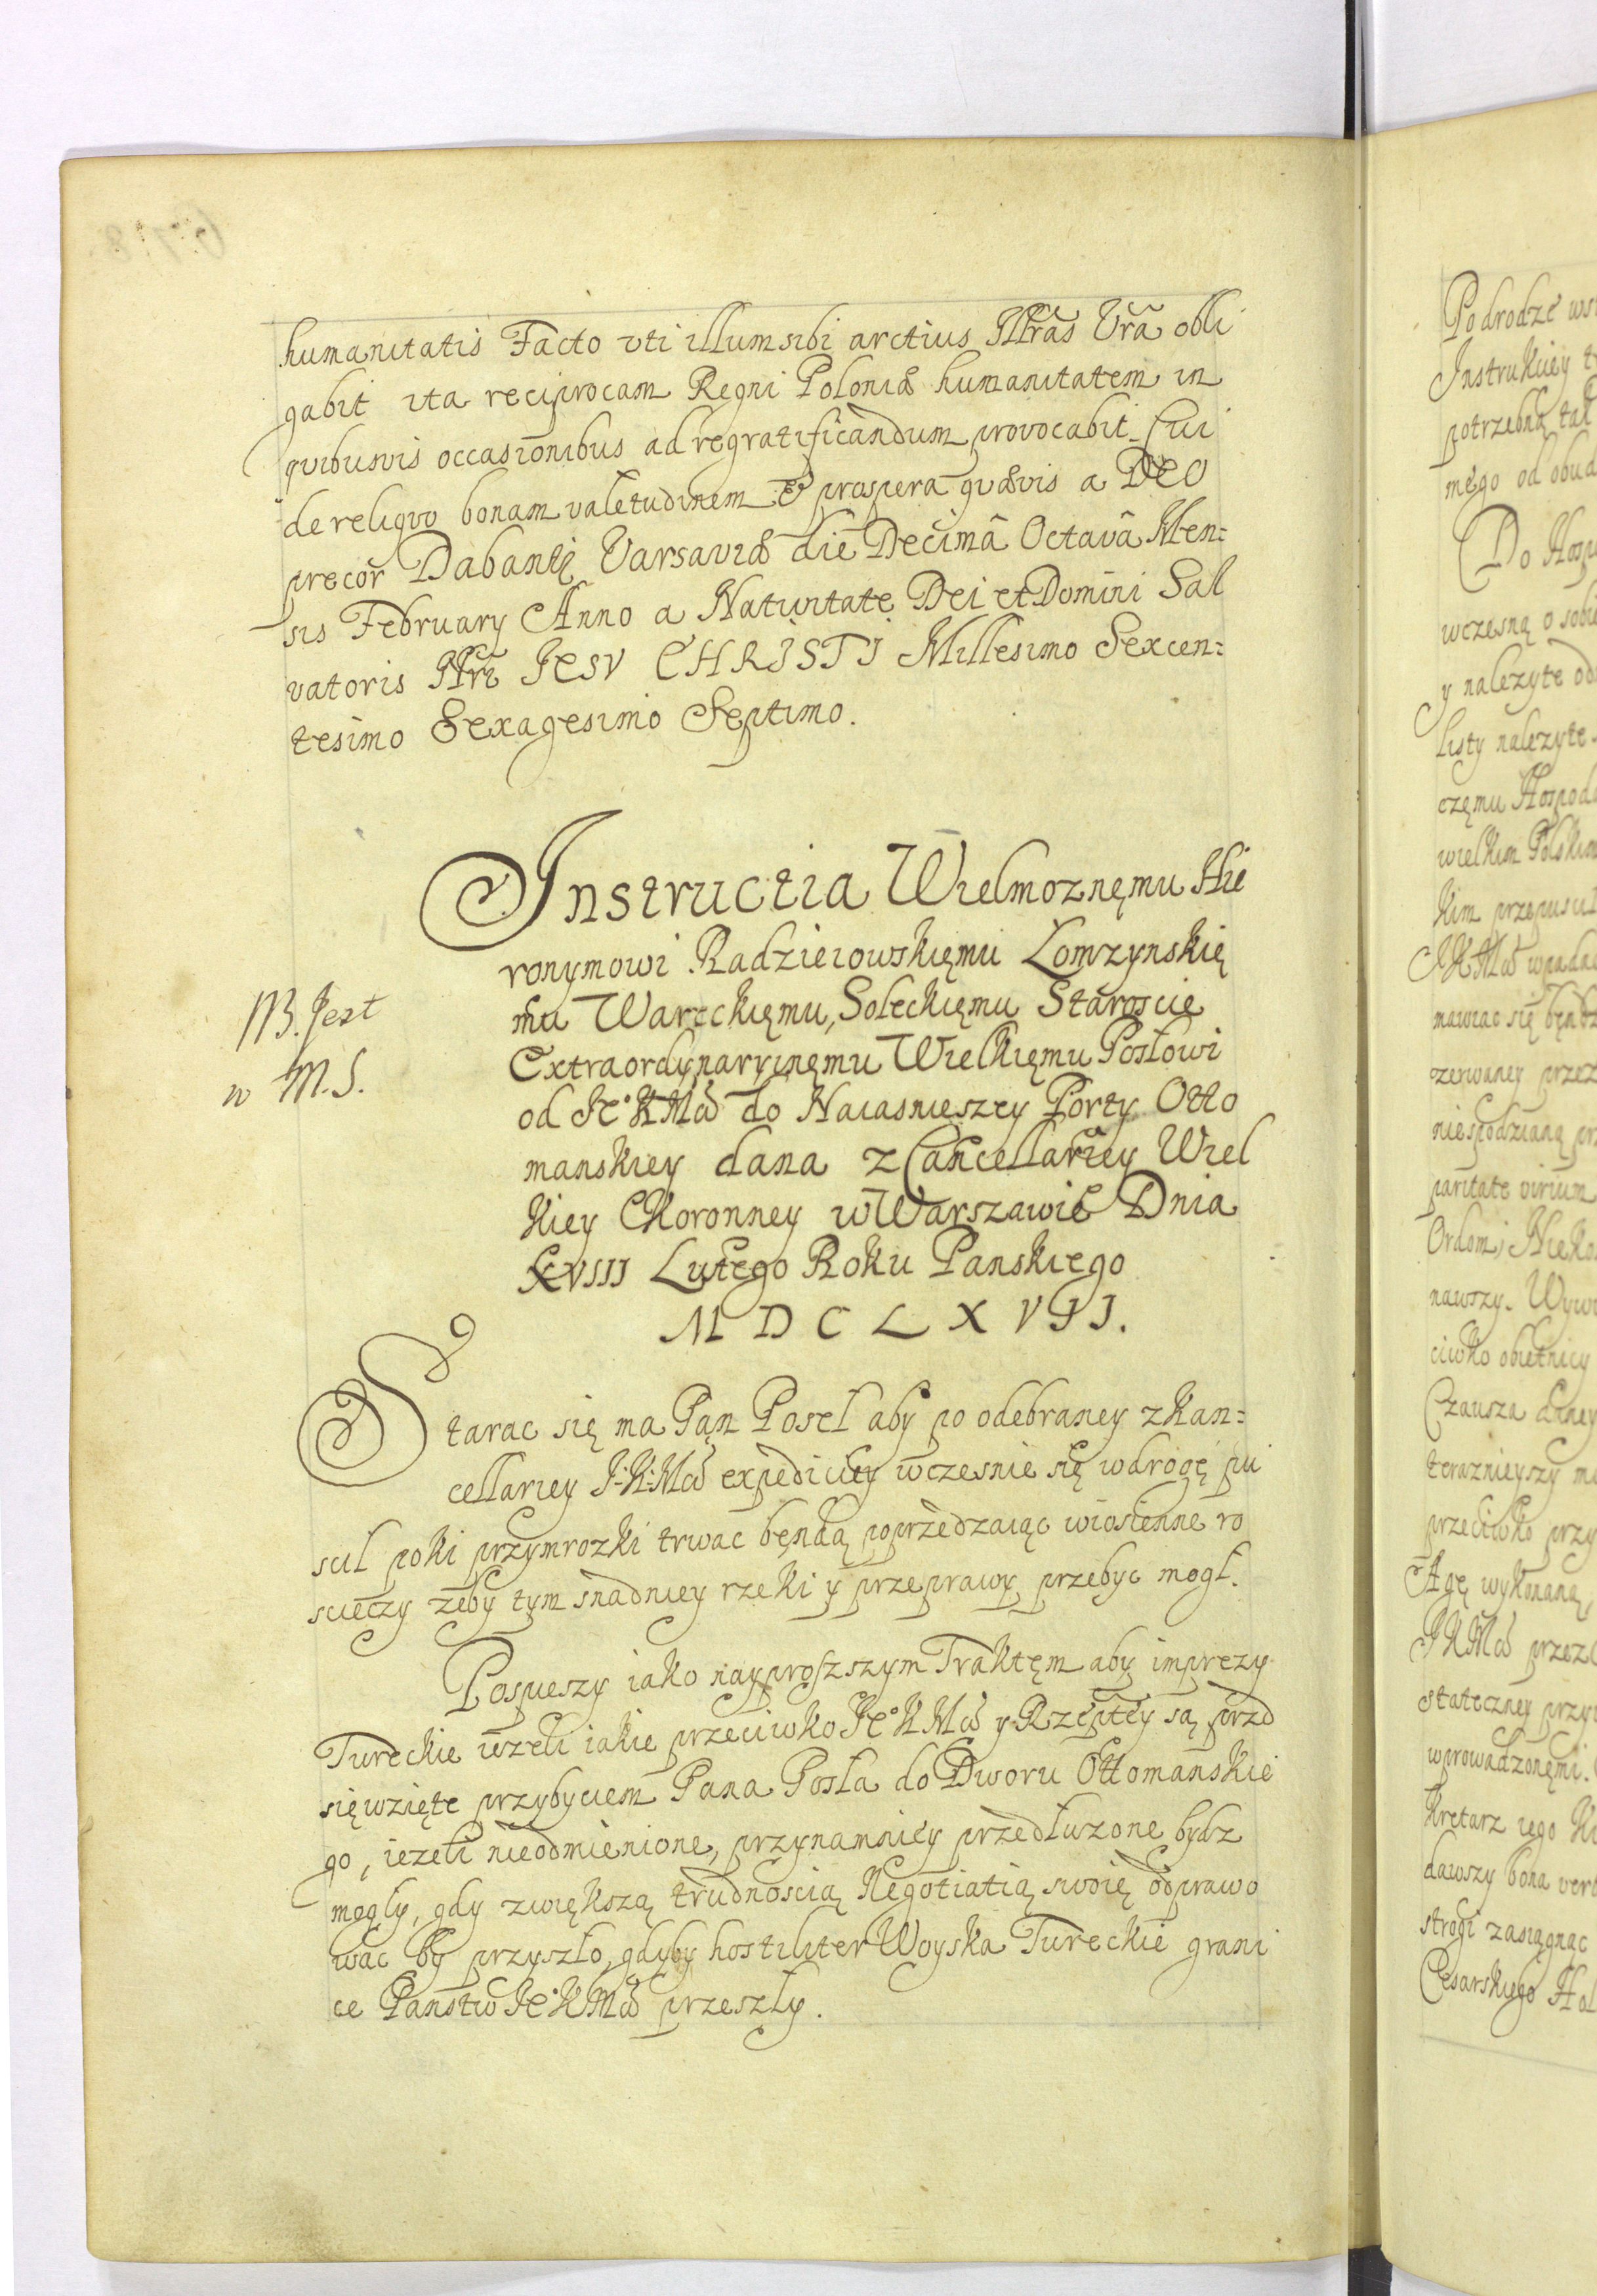 humanitatis Facto vti illum sibi arctius Illrãs Vrã obli
gabit ita reciprocam Regni Poloniæ humanitatem in
quibusvis occasionibus ad regratificandum provocabit. Cui
de reliquo bonam valetudinem & prospera quævis a DEO
precor Dabantę Varsaviæ die Decimâ Octavâ Men=
sis February Anno a Nativitate Dei et Domini Sal
vatoris Nri JESV CHRISTI Millesimo Sexcen=
tesimo Sexagesimo Septimo.
Instructia Wielmoznęmu Hie
ronymowi Radzieiowskięmu Łomzynskię
mu Wareckięmu, Soleckięmu Staroscie
Extraordynaryinęmu Wielkięmu Posłowi
od Je° K Mći do Naiasnieszey Porty Otto
manskiey dana z Cancellariey Wiel
kiey Koronney w Warszawie Dnia
XVIII Lutego Roku Panskiego
M D C L X V I I.
NB. Jest
w M.S.
Starac się ma Pąn Poseł aby po odebraney z Kan=
cellariey J: K: Mći expediciey wczesnie się w drogę pu
scił poki przymrozki trwac bęndą poprzedzaiąc wiosienne ro
scieczy zeby tym snadniey rzeki y przeprawy przebyc mogł.
Pospieszy iako nayproszszym Traktęm aby imprezy
Tureckie iezeli iakie przeciwko Je° K Mći y Rzeptey są przed
się wzięte przybyciem Pana Posła do Dworu Ottomanskie
go, iezeli nieodmienione, przynamniey przedłuzone bydz
mogły, gdy zwiększą trudnoscią Negotiatią swoię odprawo
wac by przyszło, gdyby hostiliter Woyska Tureckie grani
ce Panstw Je° K Mći przeszły.
Po drodze
Instrukciey
potrzebną
mego od
Do
wczesną o sobie
y nalezyte
listy nalezyte
częmu
wielkim Polskim
kim
J K Mći
mawiac się
zerwaney przez
niespodzianą
paritate virium
Ordom,
nawszy.
ciwko obietnicy
Czausza
teraznieyszy
przeciwko przy
Agę wykonaną,
J K Mći przez
stateczney
wprowadzonęmi.
kretarz iego
dawszy bona
strogi zasiągnąc
Cesarskięgo